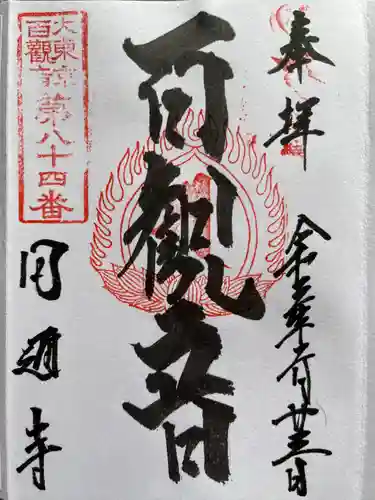 奉拝
令和六年六月廿三日
百観音
大東京
百觀音
第八十四番
円通寺